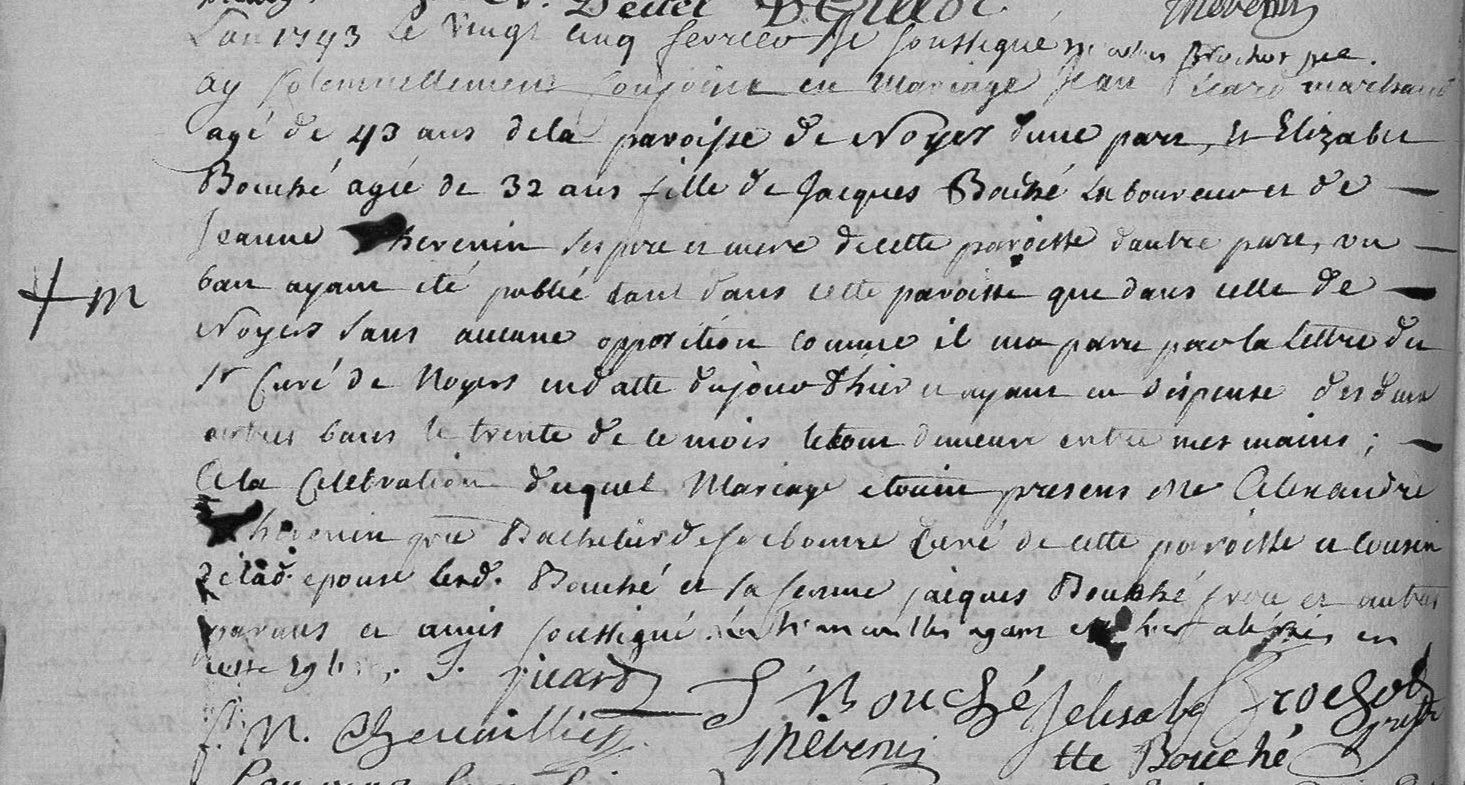 L'an 1743 Le vingt cinq fevrier Je soussigné Brochot pre
ay solemnellement conjoint en Mariage Jean Picard marchand
agé de 43 ans dela paroisse de Noyers dune part, Et Elizabet
Bouché agée de 32 ans fille de Jacques Bouché Laboureur et de
Jeanne Thevenin ses pere et mere de cette paroisse dautre part, un
ban ayant eté publié tant dans cette paroisse que dans celle de
Noyers sans aucune opposition comme il ma paru par la Lettre du
Sr Curé de Noyers endatte dujour d'hier et ayant eu dispense des deux
autres bans le trente de ce mois letout demeuré entre mes mains ;
A la Celebration duquel Mariage etoient presens Me Alexandre
Thevenin Bachelier de curé de cette paroisse et cousin
de lad. epouse led. Bouché et sa femme jacques Bouché frere et autres
parans et amis soussigné . les ayant eté hier en
cette eglise. J. picard
J Bouché Jelisabe Brochot pretre
J. N. Chevaillier Thevenin tte Bouché